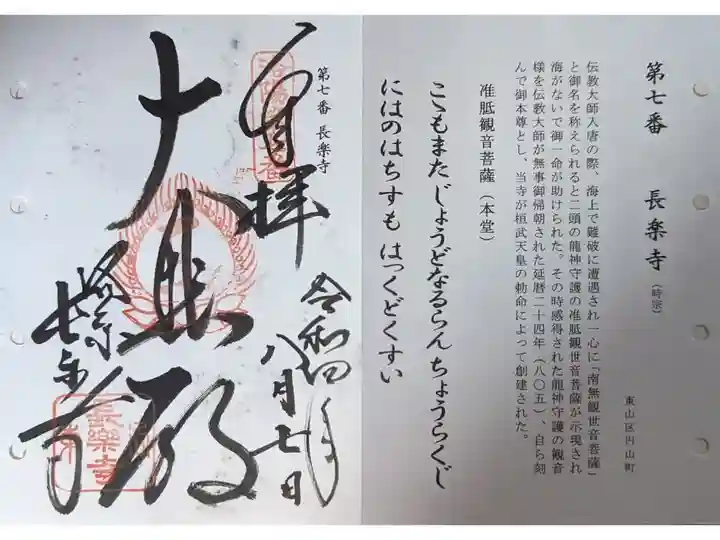 第七番 長楽寺(時宗)
東山区円山町
伝教大師入唐の際、海上で難破に遭遇され一心に「南無観世音菩薩」
と御名を称えられると二頭の龍神守護の准胝観世音菩薩が示現され
海がないで御一命が助けられた。その時感得された龍神守護の観音
様を伝教大師が無事御帰朝された延暦二十四年(八〇五)、自ら刻
んで御本尊とし、当寺が桓武天皇の勅命によって創建された。
准胝観音菩薩(本堂)
こゝもまた じょうどなるらん ちょうらくじ
にはのはちすも はっくどくすい
第七番 長楽寺
奉拝
令和四年
八月七日
大悲殿
長楽寺
長樂寺